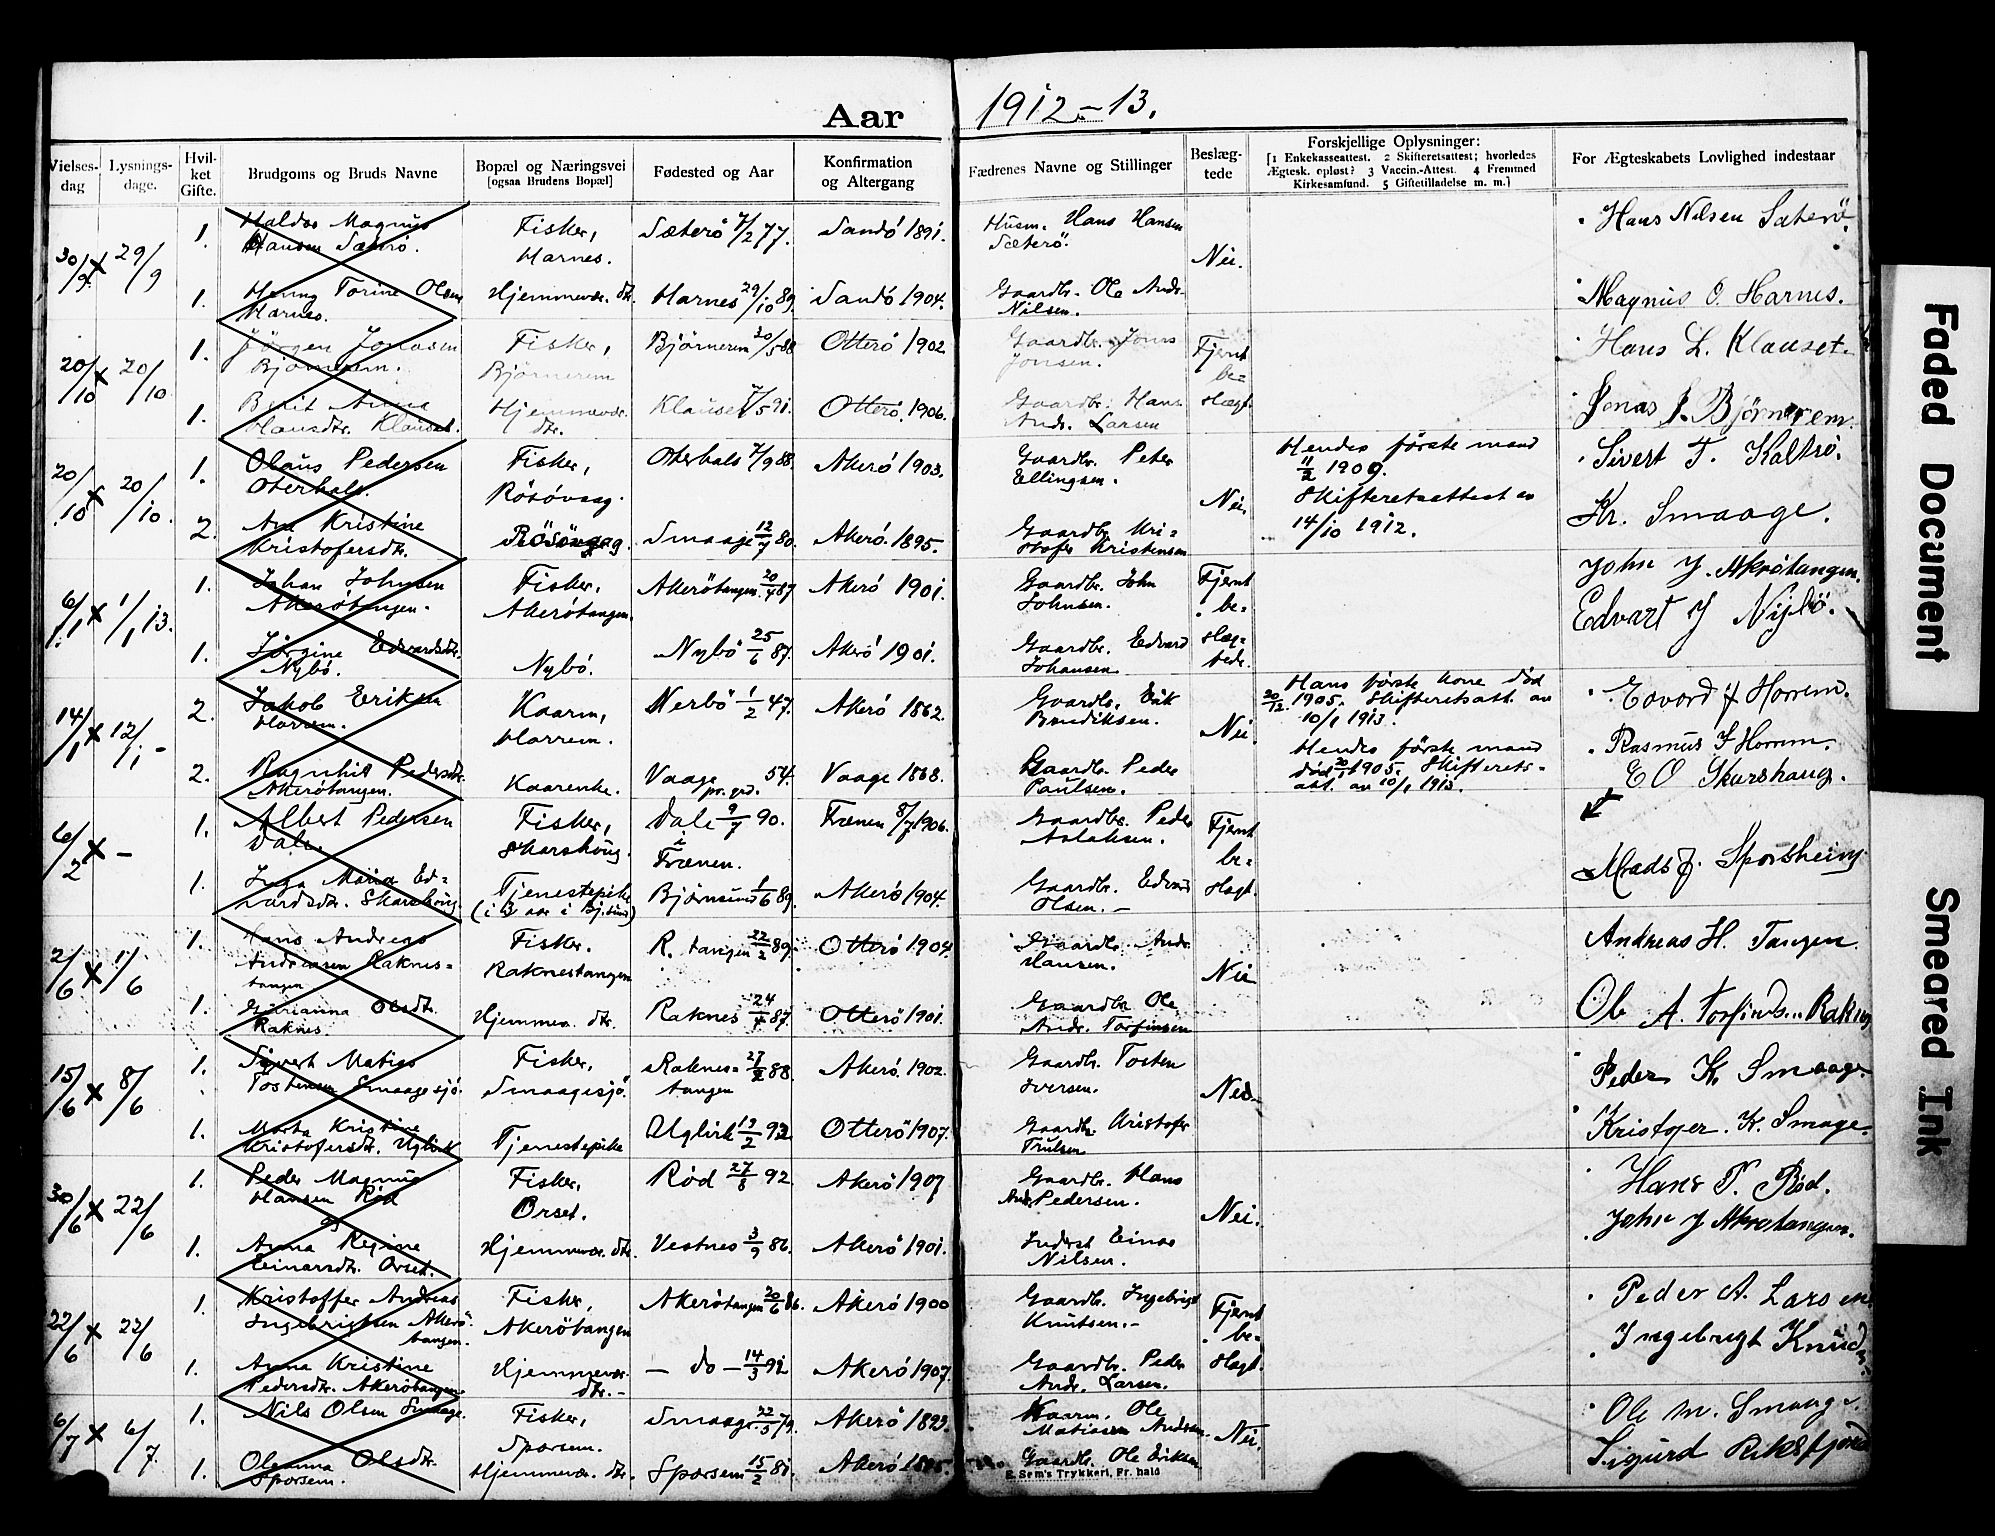 Aar 1912-13.
Vielses-dag
Lysnings-dage.
Hvil-ket Gifte.
Brudgoms og Bruds Navne
Bopæl og Næringsvei [ogsaa Brudens Bopæl]
Fødested og Aar
Konfirmation og Altergang
Fædrenes Navne og Stillinger
Beslæg-tede
Forskjellige Oplysninger: [1 Enkekasseattest. 2 Skifteretsattest; hvorledes Ægtesk. opløst? 3 Vaccin.-Attest. 4 Fremmed Kirkesamfund. 5 Giftetilladelse m. m.]
For Ægteskabets Lovlighed indestaar
30/9 x 29/9 1. Haldor Magnus Hansen Sæterö. Fisker, Harnes. Sæterö 7/2 77. Sandö 1891. Husm. Hans Hansen Sæterö. Nei. Hans Nilsen Sæterö
1. Torine Olsen Harnes. Hjemmevær. dtr. Harnes 29/10 89. Sandö 1904. Gaardbr. Ole Andr. Nilsen. Magnus O. Harnes.
20/10 x 20/10 1. Jörgen Jonasen Björnerem. Fisker, Björnerem Björnerem 30/5 88 Otterö 1902. Gaardbr. Jonas Jonsen. Fjernt be=slægt. Hans L. Klauset.
1. Berit Anna Hansdtr. Klauset. Hjemmevær. dtr. Klauset 7/5 91. Otterö 1906. Gaardbr. Hans Andr. Larsen Jonas J. Björnerem.
20/10 x 20/10. 1. Olaus Pedersen Oterhals. Fisker, Rösövaag. Oterhals 7/9 88. Akerö 1903. Gaardbr. Peter Ellingsen. Nei. Hendes første mand 11/2 1909. Skifteretsattest av 14/10 1912. Sivert T. Kaltsö.
2. Ane Kristine Kristofersdtr. Rösövaag. Smaage 12/7 80. Akerö 1895. Gaardbr. Kri=stofer Kristensen Kr. Smaage.
6/1 x 1/1 13. 1. Johan Johnsen Akerötangen. Fisker, Akerötangen. Akerötangen 20/4 87 Akerö 1901. Gaardbr. John Johnsen. Fjernt be=slæg=tede. John J. Akrötangen.
1. Jörgine Edvardsdtr. Nybö. Nybö. Nybö 25/6 87. Akerö 1901. Gaardbr. Edvard Johansen Edvart J Nybö.
14/1 x 12/1 - 2. Jakob Eriksen Horrem. Kaarm, Horrem. Nerbö 1/2 47. Akerö 1862. Gaardbr. Erik Bendiksen. Nei. Hans første kone død 20/12 1905. Skifteretsatt. av 10/1 1913. Edvard J Horrem.
2. Ragnhild Pedersdtr. Akerötangen. Kaarenke. Vaage pr. grd. 54. Vaage 1868. Gaardbr. Peder Paulsen. Hendes første mand død 20/1 1905. Skifterets=att. av 10/1 1913. Rasmus J Horrem.
E O Skarshaug.
6/2 x - 1. Albert Pedersen Dale. Fisker, Skarshaug. Dale 9/7 90. i Frænen. Frænen 8/7 1906. Gaardbr. Peder Aslaksen. Fjernt be=slægt. Mads J. Sporsheim
1. Inga Maria Ed=vardsdtr. Skarshaug. Tjenestepike (i 3 aar i Bj.sund) Björnsund 1/6 89. Akerö 1904. Gaardbr. Edvard Olsen. -
2/6 x 1/6 1. Hans Andreas Andreasen Raknes=tangen Fisker. Raknestangen R. tangen 22/2 89. Otterö 1904. Gaardbr. Andr. Hansen. Nei Andreas H. Tangen
1. Olsdtr. Raknes Hjemmev. dtr. Raknes 24/4 87. Otterö 1901. Gaardbr. Ole Andr. Torfinsen Ole A. Torfinds. Raknes
15/6 x 8/6 1. Sivert Matias Tostensen Smaagesjö. Fisker. Smaagesjö. Raknes=tangen 27/2 88. Akerö. 1902. Gaardbr. Tosten Iversen. Nei. Peder K. Smaage.
1. Marta Kristine Kristofersdtr. Uglvik Tjenestepike Uglvik 13/2 92 Otterö 1907. Gaardbr. Kristofer Trulsen Kristofer. K. Smage.
30/6 x 22/6 1. Peder Magnus Hansen Röd og Fisker, Orset. Röd 27/8 92 Akerö 1907 Gaardbr. Hans Andr. Pedersen. Nei. Hans P. Röd.
1. Anna Regine Einarsdtr. Orset. Hjemmevær. dtr. Vestnes 3/9 86. Akerö 1901. Inderst Einar Nilsen. John J Akrotangen.
22/6 x 22/6 1. Kristoffer Andreas Ingebrigtsen Akerö=tangen. Fisker, Akerötangen Akerötangen 20/6 86. Akerö 1900 Gaardbr. Ingebrigt Knutsen. - Fjernt be=slægt. Peder A. Larsen
1. Anna Kristine Pedersdtr. Akerötangen. Hjemmevær. dtr. - - do - 14/3 92 Akerö 1907. Gaardbr. Peder Andr. Larsen. Ingebrigt Knuds
6/7 x 6/7. 1. Nils Olsen Smaage. Fisker, Sporsem. Smaage 22/5 79. Akerö 1893. Kaarm. Ole Matiasen Andersen. Nei. Ole M. Smaage.
1. Olianna Olsdtr. Sporsem. Hjemmevær. dtr. Sporsem 15/2 81. Akerö 1895. Gaardbr. Ole Eriksen Sigurd Riksfjord
E. Sem's Trykkeri, Fr. hald
Faded Document
Smeared Ink